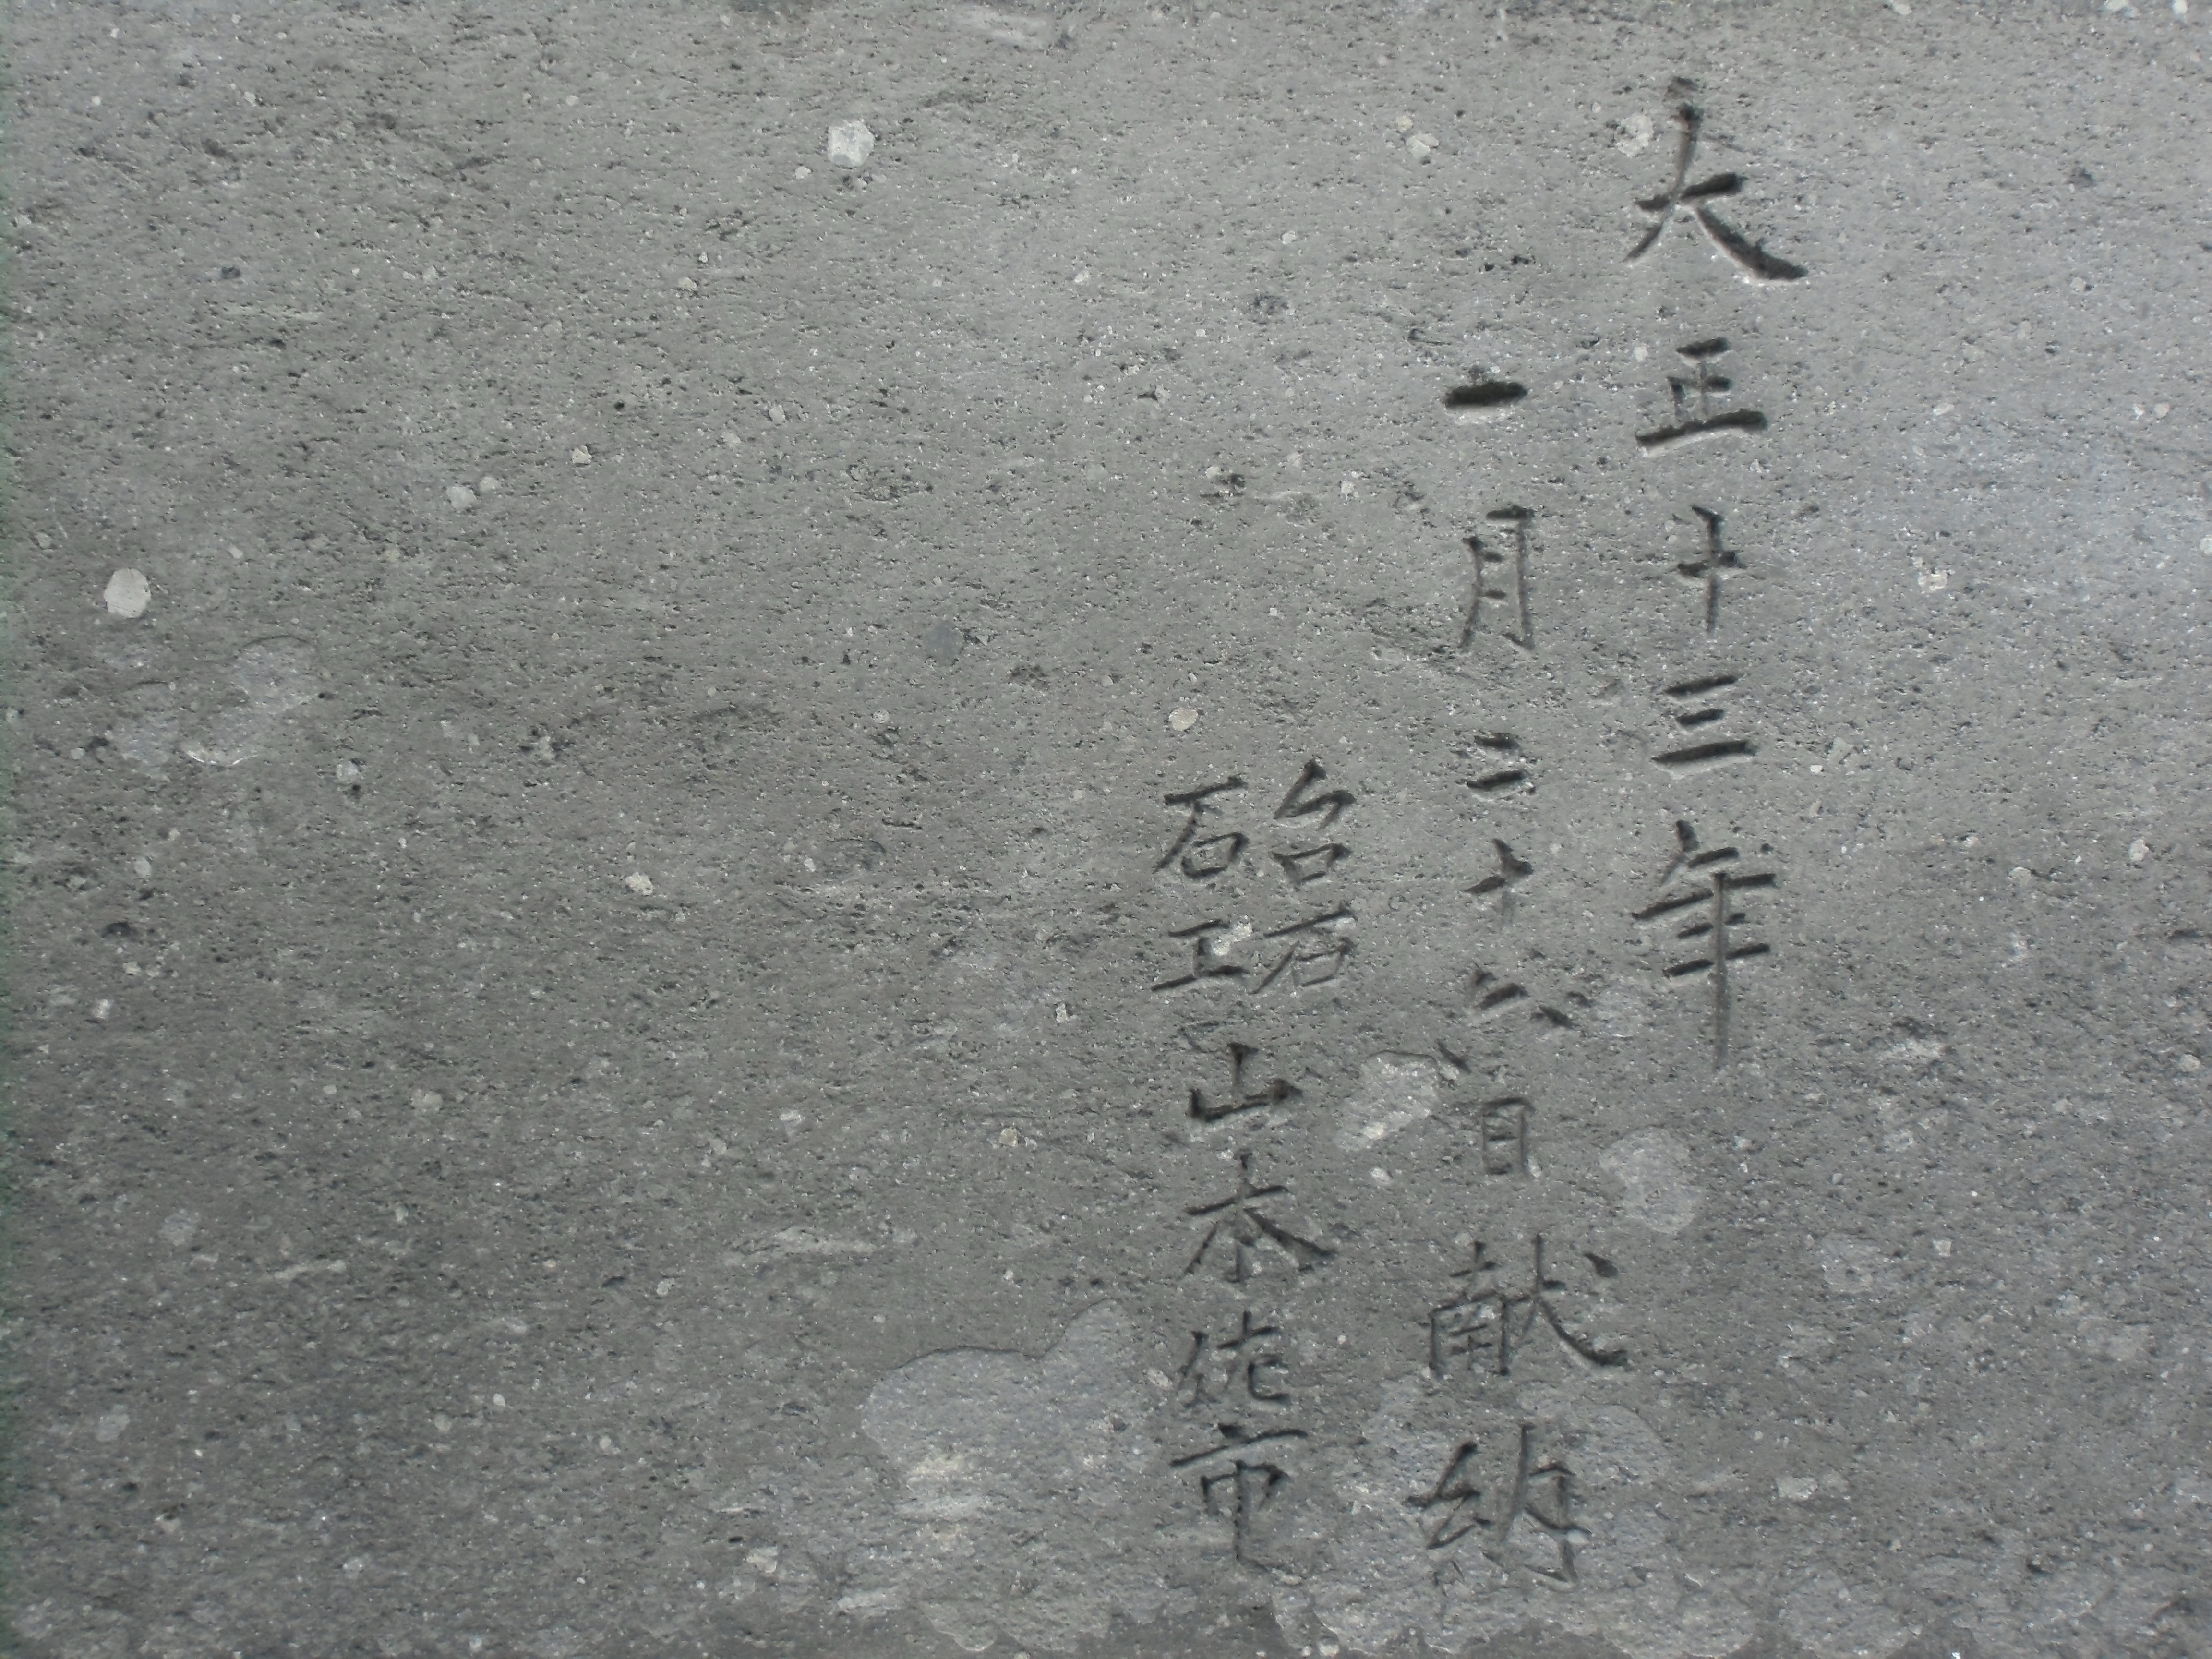 大正十三年
一月二十六日献納
台石
石工
山本佐市